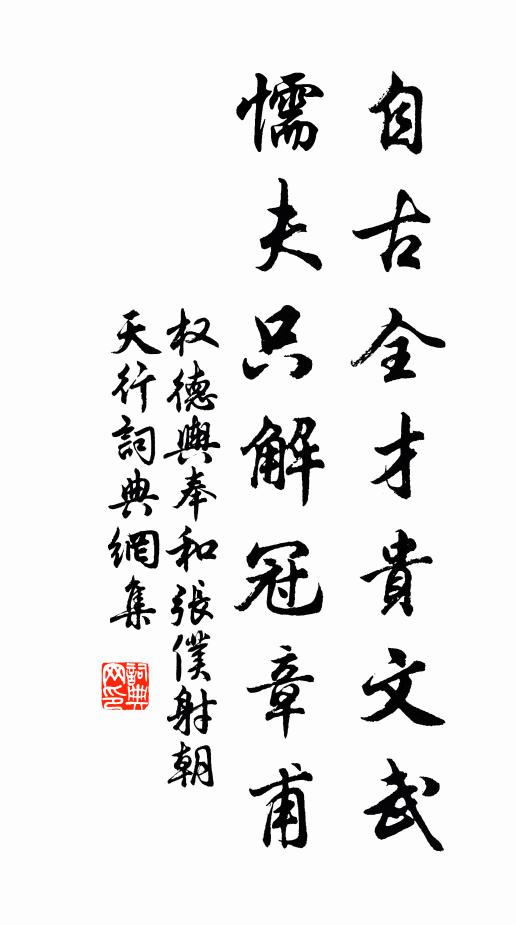 自古全才貴文武
懦夫只解冠章甫
权德輿奉和張僕射朝
天行詞典網集
詞典
网印